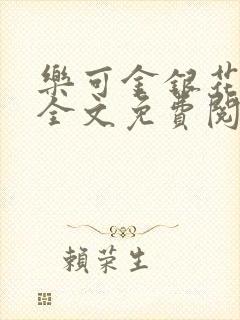 樂可金銀花
全文免費閱
賴榮生